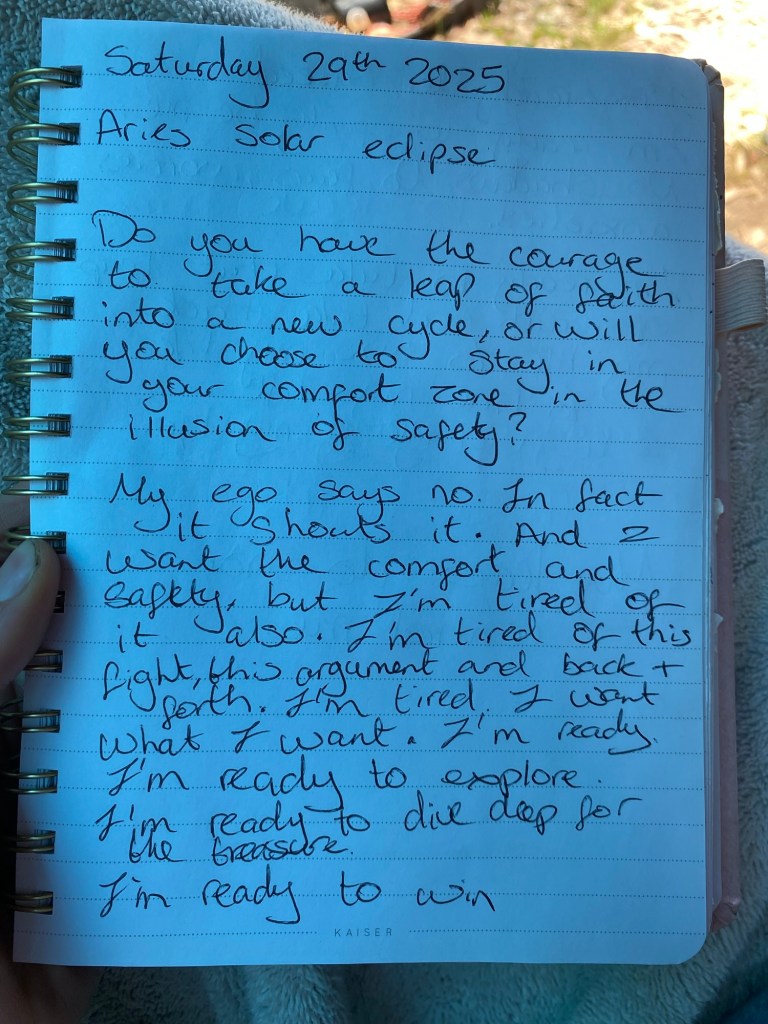 Saturday 29th 2025
Aries Solar eclipse
Do you have the courage
to take a leap of faith
into a new cycle, or will
you choose to stay in
your comfort zone in the
illusion of safety?
My ego says no. In fact
it shouts it. And I
want the comfort and
safety, but I'm tired of
it also. I'm tired of this
fight, this argument and back +
forth. I'm tired. I want
what I want. I'm ready.
I'm ready to explore.
I'm ready to dive deep for
the treasure.
I'm ready to win
KAISER